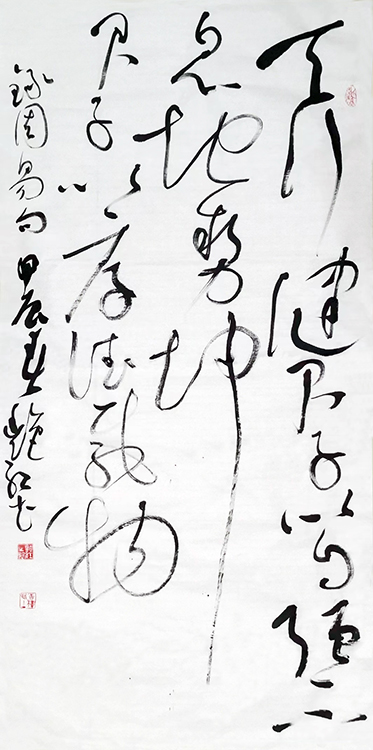 天行健君子以自强不
息地势坤
君子以厚德载物
录周易句甲辰春